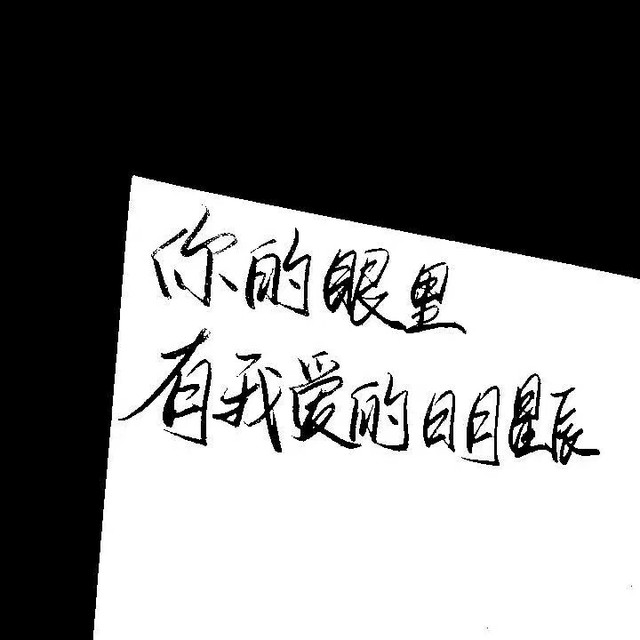 你的眼里
有我爱的日月星辰